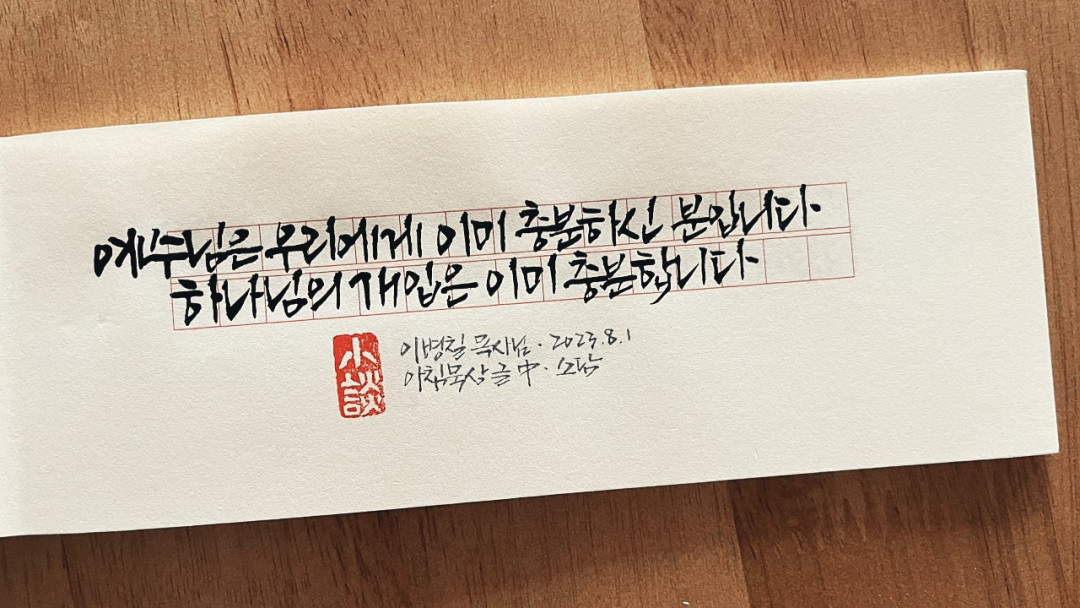 예수님은 우리에게 이미 충분하신 분입니다.
하나님의 개입은 이미 충분합니다.
小談
이병칠 목사님. 2023.8.1
아침묵상 글 中. 소담